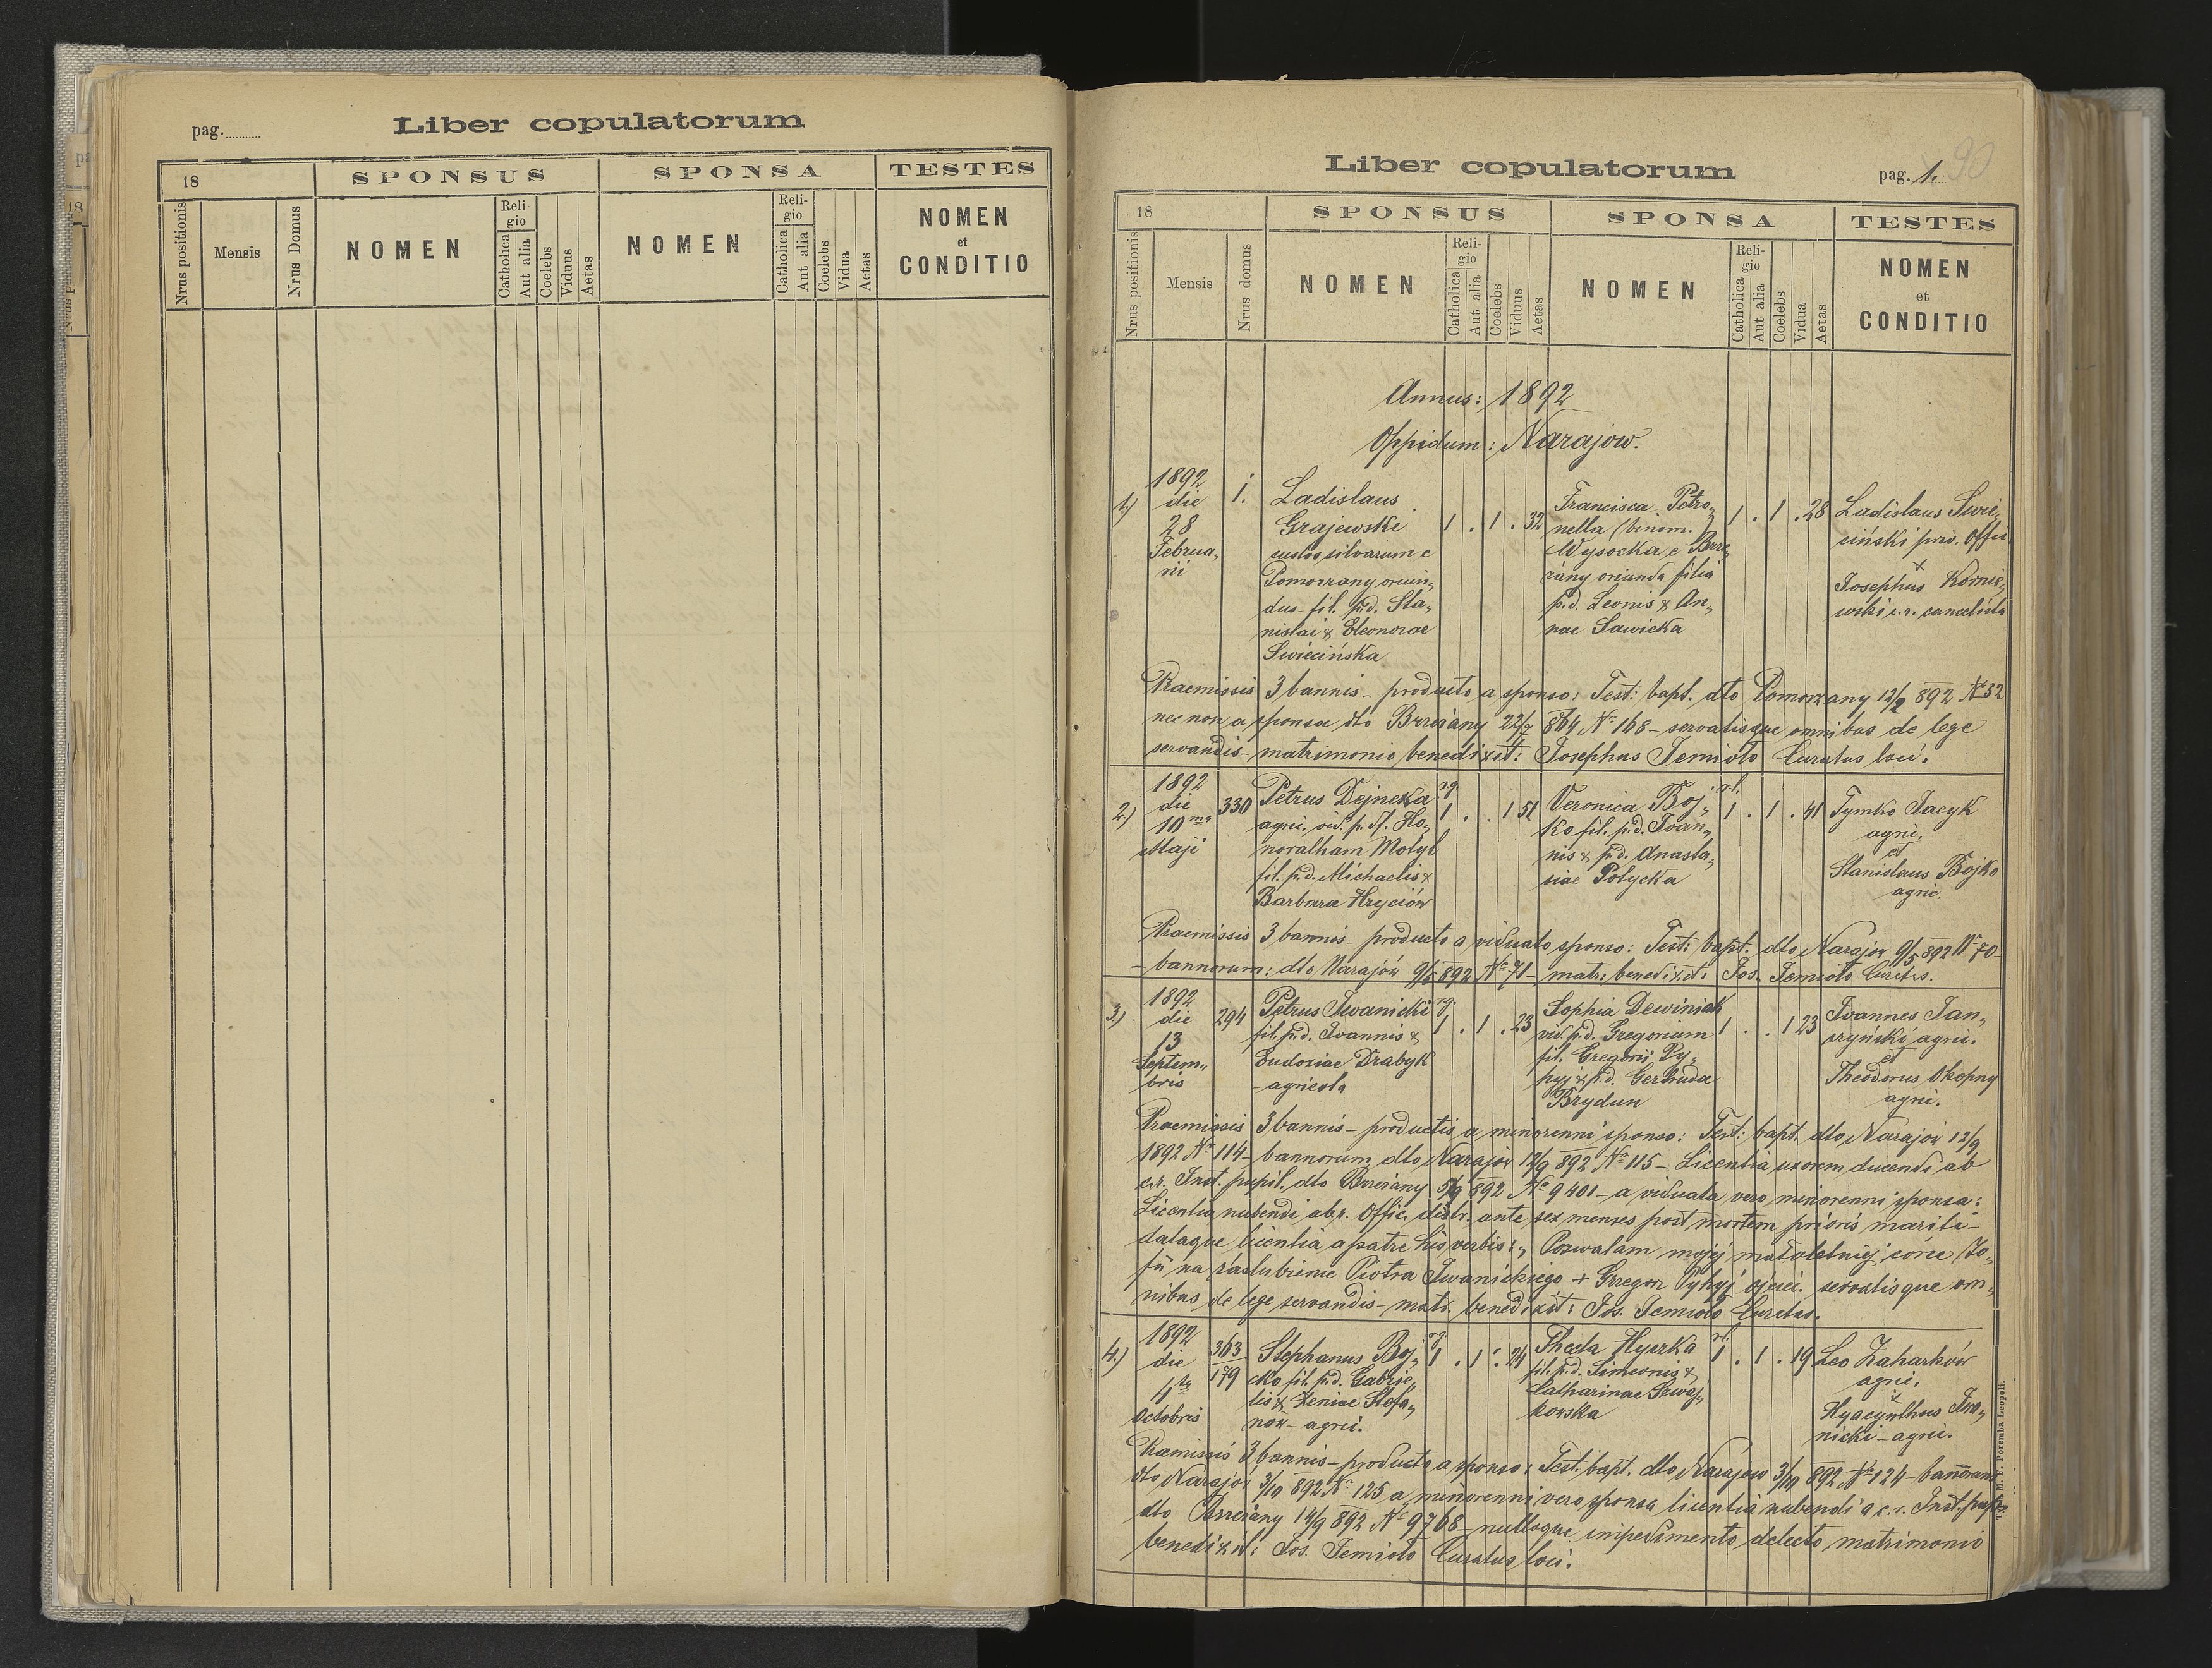 pag.
Liber copulatorum
18
SPONSUS
SPONSA
TESTES
Nrus positionis
Mensis
Nrus Domus
NOMEN
Religio
Catholica
Aut alia
Coelebs
Viduus
Aetas
NOMEN
Religio
Catholica
Aut alia
Coelebs
Vidua
Aetas
NOMEN
et
CONDITIO
Liber copulatorum
pag. 1. 90
18
SPONSUS
SPONSA
TESTES
Nrus positionis
Mensis
Nrus domus
NOMEN
Religio
Catholica
Aut alia
Coelebs
Viduus
Aetas
NOMEN
Religio
Catholica
Aut alia
Coelebs
Vidua
Aetas
NOMEN
et
CONDITIO
Annus: 1892
Oppidum: Narajow.
1)
1892
die
28
Februa„
rii
1.
Ladislaus
Grajewski
custos silvarum e
Pomorzany oriun„
dus fil. p.d. Sta„
nislai & Eleonorae
Swiecińska
1 . 1 . 32
Francisca Petro„
nella (binom.)
Wysocka e Brze„
żany oriunda filia
p.d. Leonis & An„
nae Sawicka
1 . 1 . 28
Ladislaus Swie„
ciński priv. Offic.
&
Josephus
wski c.r. cancelista
Praemissis 3 bannis – producto a sponso: Test: bapt. dto Pomorzany 12/2 892 No 32
nec non a sponsa dto Brzeżany 22/7 864 No 168 – servatisque omnibus de lege
servandis – matrimonio benedixit: Josephus Jemioło Curatus loci.
2.)
1892
die
10ma
Maji
330
Petrus Dejneka
agri. vid. p. d. Ho„
noratham Motyl
fil. p.d. Michaelis &
Barbara Hryciów
rg.
1 . . 1 51
Veronica Boj„
ko fil. p.d. Joan„
nis & p.d. Anasta„
siae Potycka
r.l.
1 . 1 . 41
Tymko Jacyk
agri.
et
Stanislaus Bojko
agric.
Praemissis 3 bannis – producto a viduato sponso: Test: bapt. dto Narajow 9/5 892 No 70 –
– bannorum: dto Narajów 9/5 892 No 71 – matr: benedixit: Jos. Jemioło Curatus.
3)
1892
die
13
Septem„
bris
294
Petrus Iwanicki
fil. p.d. Ioannis &
Eudoxiae Drabyk
agricola
rg.
1 . 1 . 23
Sophia Dewiniak
vid. p.d. Gregorium
fil. Gregorii Py„
pyj & p.d. Gertruda
Brydun
1 . . 1 23
Joannes Jan„
szyński agri.
et
Theodorus Okopny
agri.
Praemissis 3 bannis – productis a minorenni sponso: Test: bapt. dto Narajów 12/9
1892 No 114 – bannorum dto Narajow 12/9 892 No 115 – Licentia uxorem ducendi ab
c.r. Inst. pupil. dto Brzeżany 5/9 892 No 9401 – a viduata vero minorenni sponsa:
Licentia nubendi ab c. r. Offic. distr. ante sex menses post mortem prioris mariti –
dataque licentia a patre his verbis: „Pozwalam mojej małoletniej córce Zo„
fii na zaślubienie Piotra Iwanickiego + Grzegorz Pypyj ojciec. servatisque om„
nibus de lege servandis – matr. benedixit: Jos. Jemioło Curatus.
4.)
1892
die
4ta
Octobris
363
179
Stephanus Boj„
cko fil. p.d. Gabrie„
lis & Xeniae Stefa„
now – agri.
rg.
1 . 1 . 24
Thecla Hyszka
fil. p.d. Simeonis &
Catharinae Szwaj„
kowska
r.l.
1 . 1 . 19
Leo Zaharków
agri.
&
Hyacynthus Iwa„
nicki – agri.
Praemissis 3 bannis – producto a sponso: Test. bapt. dto Narajow 3/10 892 No 124 – bannorum
dto Narajow 3/10 892 No 125 a minorenni vero sponsa licentia nubendi a c.r. Inst. pupil.
dto Brzeżany 14/9 892 No 9768 – nulloque impedimento detecto matrimonio
benedixit: Jos. Jemioło Curatus loci.
Poremba Leopoli.